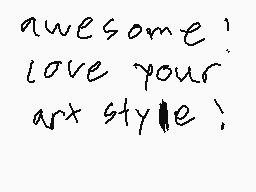 awesome!
love your
art style!